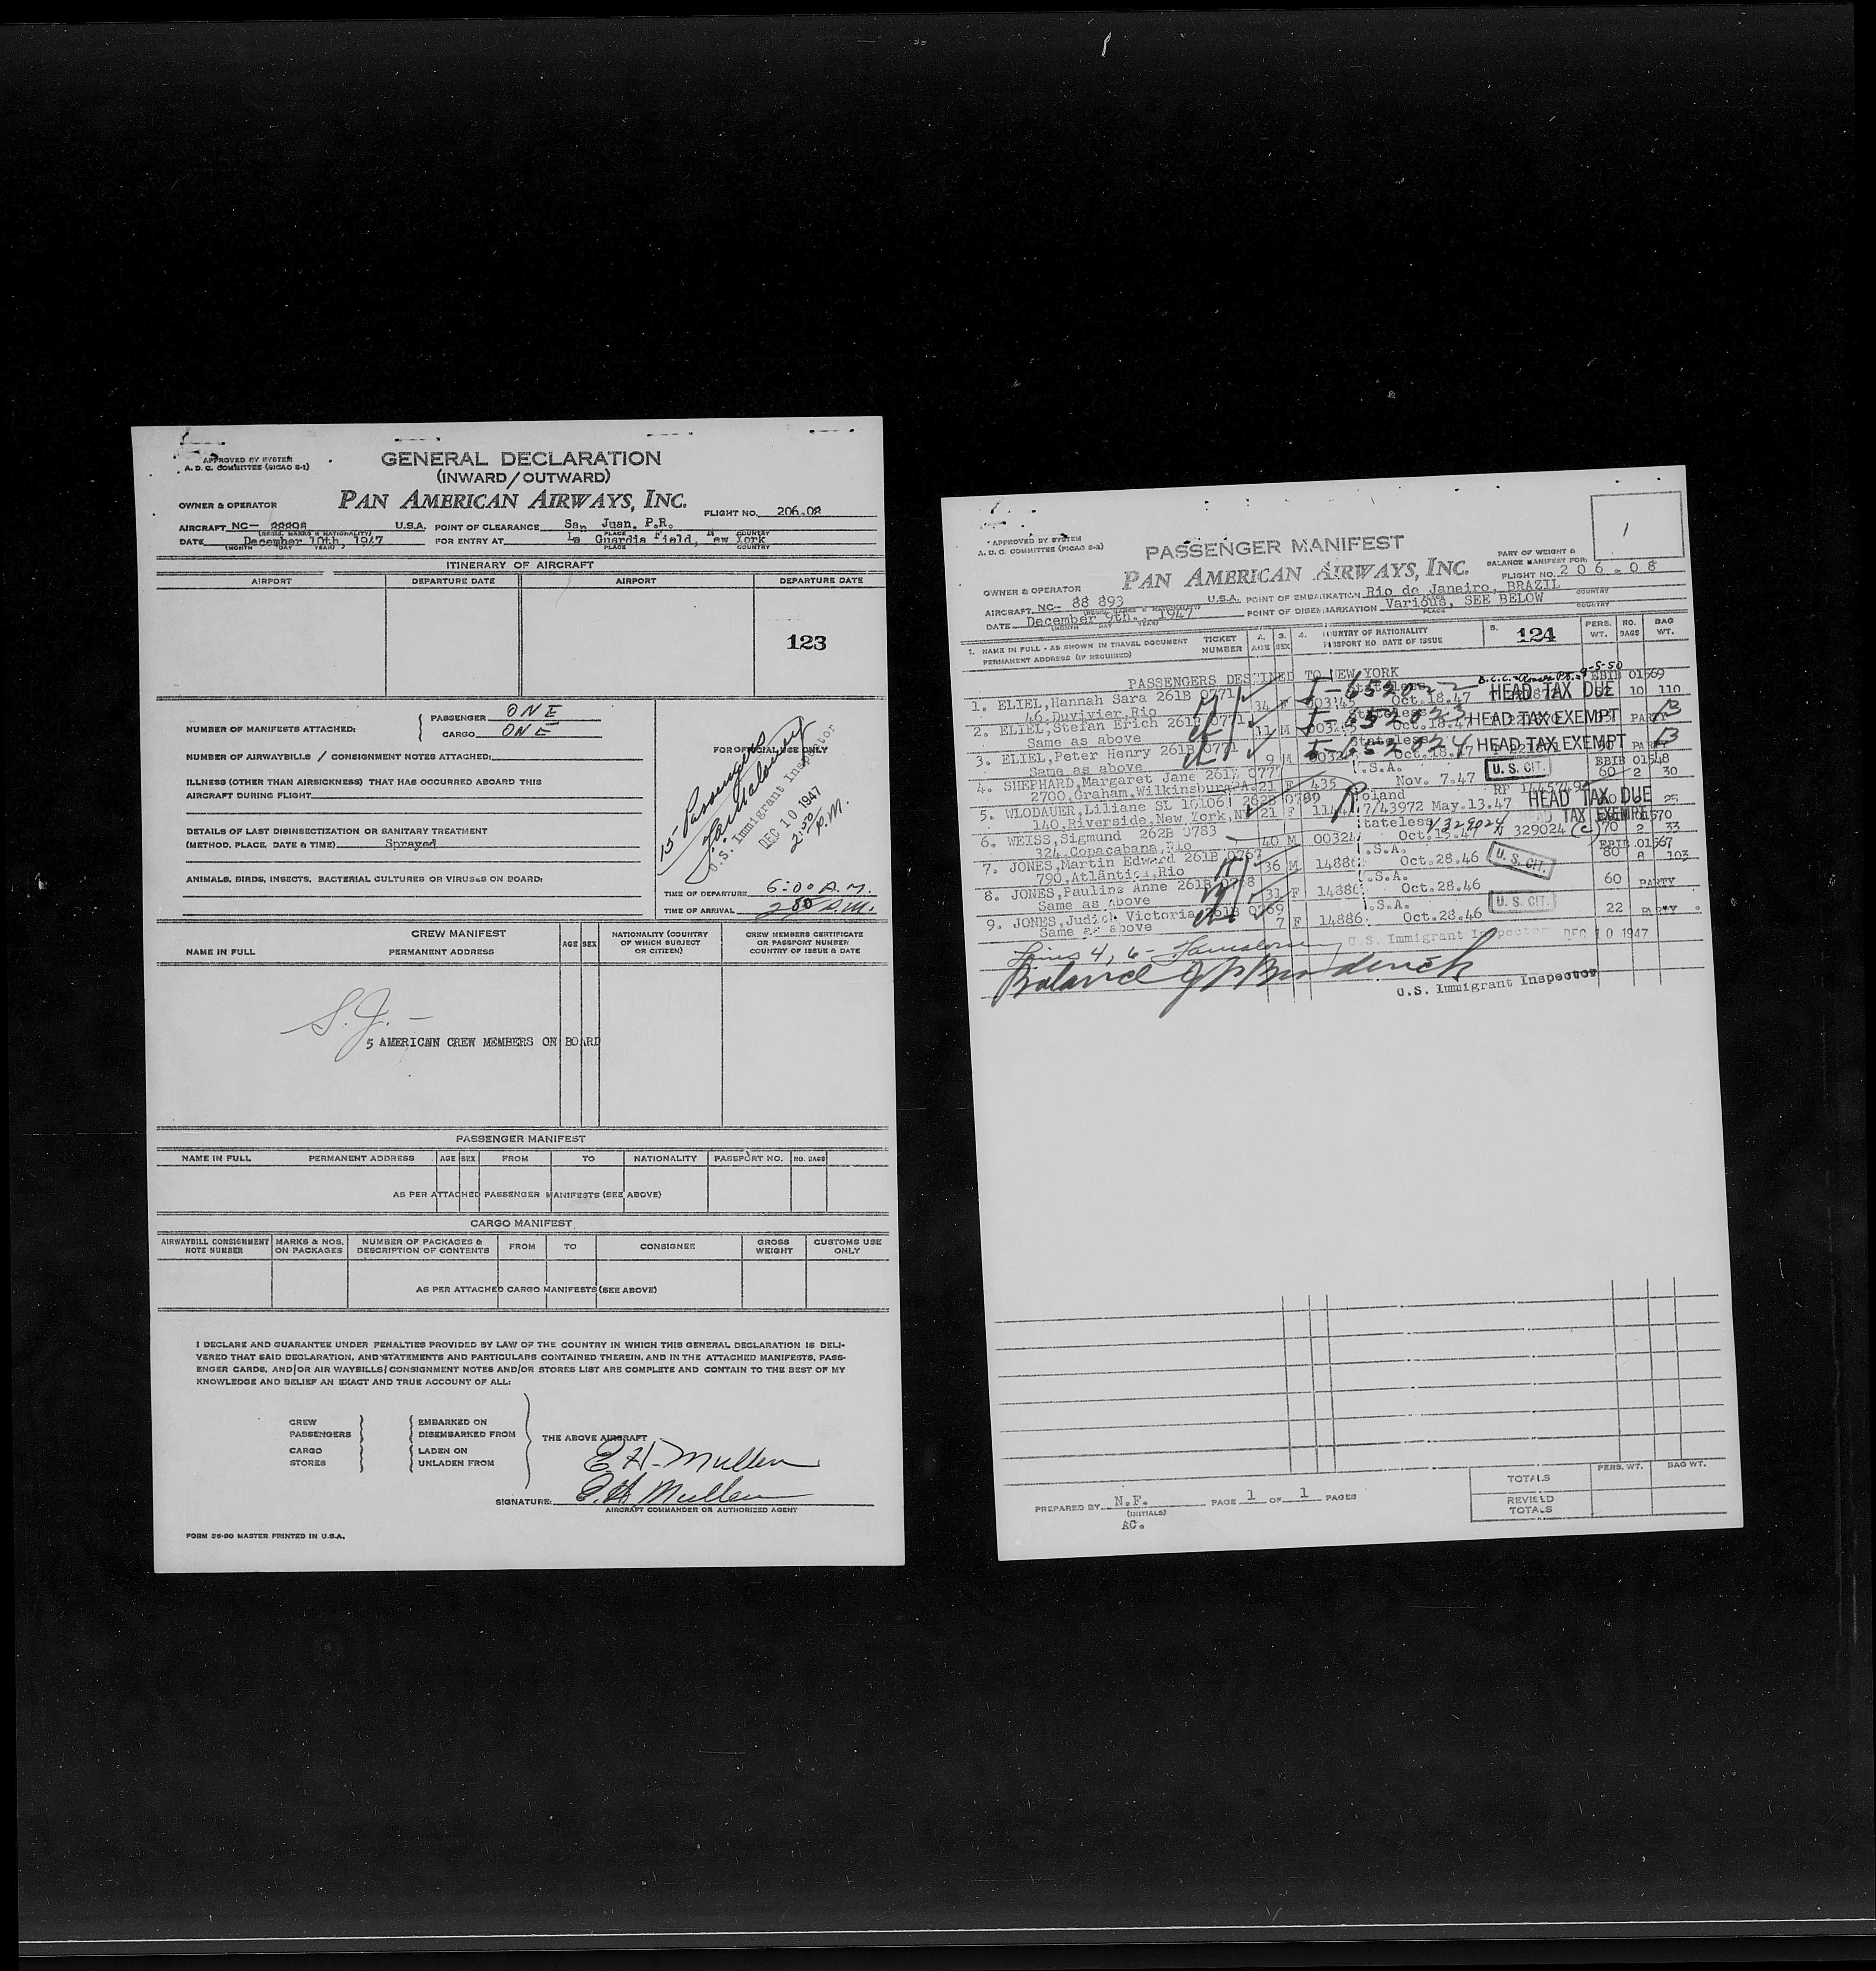 APPROVED BY SYSTEM
A. D. C. COMMITTEE (PICAO S-1)
GENERAL DECLARATION
(INWARD/OUTWARD)
OWNER & OPERATOR
PAN AMERICAN AIRWAYS, INC.
FLIGHT NO. 206.08
AIRCRAFT NC- U.S.A. POINT OF CLEARANCE San Juan. P.R.
(REGIS. MARKS & NATIONALITY) PLACE COUNTRY
DATE December 10th, 1947 FOR ENTRY AT La Guardia Field, New York
(MONTH DAY YEAR) PLACE COUNTRY
ITINERARY OF AIRCRAFT
AIRPORT DEPARTURE DATE AIRPORT DEPARTURE DATE
123
NUMBER OF MANIFESTS ATTACHED: { PASSENGER ONE
CARGO ONE
NUMBER OF AIRWAYBILLS / CONSIGNMENT NOTES ATTACHED:
ILLNESS (OTHER THAN AIRSICKNESS) THAT HAS OCCURRED ABOARD THIS
AIRCRAFT DURING FLIGHT
DETAILS OF LAST DISINSECTIZATION OR SANITARY TREATMENT
(METHOD, PLACE, DATE & TIME) Sprayed
ANIMALS, BIRDS, INSECTS, BACTERIAL CULTURES OR VIRUSES ON BOARD:
FOR OFFICIAL USE ONLY
15 Passengers
U.S. Immigrant Inspector
DEC 10 1947
2:50 P.M.
TIME OF DEPARTURE 6:00 A.M.
TIME OF ARRIVAL 2 50 P.M.
CREW MANIFEST
NAME IN FULL PERMANENT ADDRESS AGE SEX NATIONALITY (COUNTRY OF WHICH SUBJECT OR CITIZEN) CREW MEMBERS CERTIFICATE OR PASSPORT NUMBER COUNTRY OF ISSUE & DATE
S.J. -
5 AMERICAN CREW MEMBERS ON BOARD
PASSENGER MANIFEST
NAME IN FULL PERMANENT ADDRESS AGE SEX FROM TO NATIONALITY PASSPORT NO. NO. BAGS
AS PER ATTACHED PASSENGER MANIFESTS (SEE ABOVE)
CARGO MANIFEST
AIRWAYBILL CONSIGNMENT NOTE NUMBER MARKS & NOS. ON PACKAGES NUMBER OF PACKAGES & DESCRIPTION OF CONTENTS FROM TO CONSIGNEE GROSS WEIGHT CUSTOMS USE ONLY
AS PER ATTACHED CARGO MANIFESTS (SEE ABOVE)
I DECLARE AND GUARANTEE UNDER PENALTIES PROVIDED BY LAW OF THE COUNTRY IN WHICH THIS GENERAL DECLARATION IS DELI-
VERED THAT SAID DECLARATION, AND STATEMENTS AND PARTICULARS CONTAINED THEREIN, AND IN THE ATTACHED MANIFESTS, PASS-
ENGER CARDS, AND/OR AIR WAYBILLS/CONSIGNMENT NOTES AND/OR STORES LIST ARE COMPLETE AND CONTAIN TO THE BEST OF MY
KNOWLEDGE AND BELIEF AN EXACT AND TRUE ACCOUNT OF ALL:
CREW EMBARKED ON
PASSENGERS DISEMBARKED FROM
THE ABOVE AIRCRAFT
CARGO LADEN ON
STORES UNLADEN FROM
E H. Mullen
SIGNATURE: E. H Mullen
AIRCRAFT COMMANDER OR AUTHORIZED AGENT
FORM 26-90 MASTER PRINTED IN U.S.A.
1
APPROVED BY SYSTEM
A. D. C. COMMITTEE (PICAO S-2)
PASSENGER MANIFEST
PART OF WEIGHT &
BALANCE MANIFEST FOR:
OWNER & OPERATOR
PAN AMERICAN AIRWAYS, INC.
FLIGHT NO. 206.08
AIRCRAFT NC- 88 893 U.S.A. POINT OF EMBARKATION Rio de Janeiro, BRAZIL
DATE December 9th. 1947 POINT OF DISEMBARKATION Various, SEE BELOW
(MONTH DAY YEAR) PLACE COUNTRY
1. NAME IN FULL - AS SHOWN IN TRAVEL DOCUMENT TICKET NUMBER 2. AGE 3. SEX 4. COUNTRY OF NATIONALITY PASSPORT NO. DATE OF ISSUE 5. 124 PERS. WT. NO. BAGS BAG WT.
PERMANENT ADDRESS (IF REQUIRED)
PASSENGERS DESTINED TO NEW YORK
1. ELIEL, Hannah Sara 261B 0771 34 F Stateless HEAD TAX DUE EBIB 01569 10 110
46, Duvivier, Rio Oct.18.47
2. ELIEL, Stefan Erich 261B 0771 11 M Stateless HEAD TAX EXEMPT PARTY
Same as above Oct.18.47
3. ELIEL, Peter Henry 261B 0771 9 M Stateless HEAD TAX EXEMPT
Same as above Oct.18.47
4. SHEPHARD, Margaret Jane 261B 077 21 F 435 U.S.A. U. S. CIT. EBIB 01548
2700, Graham, Wilkinsburg PA. Nov. 7.47 60 2 30
5. WLODAUER, Liliane SL 16106 262B 21 F Poland HEAD TAX DUE 25
140, Riverside, New York, NY 7/43972 May.13.47
6. WEISS, Sigmund 262B 0783 40 M Stateless V 329024 HEAD TAX EXEMPT
324, Copacabana, Rio Oct.15.47 329024 70 2 33
7. JONES, Martin Edward 261B 0767 36 M 14886 U.S.A. U. S. CIT. EBIB 01567
790, Atlântica, Rio Oct.28.46 80 8 103
8. JONES, Pauline Anne 261B 0768 31 F 14886 U.S.A. 60 PARTY
Same as above Oct.28.46
9. JONES, Judith Victoria 261B 0769 7 F 14886 U.S.A. U. S. CIT. 22 PARTY
Same as above Oct.28.46
Lines 4, 6 - U.S. Immigrant Inspector DEC 10 1947
Balance
U.S. Immigrant Inspector
TOTALS PERS. WT. BAG WT.
REVISED TOTALS
PREPARED BY N.F. PAGE 1 OF 1 PAGES
(INITIALS)
AC.